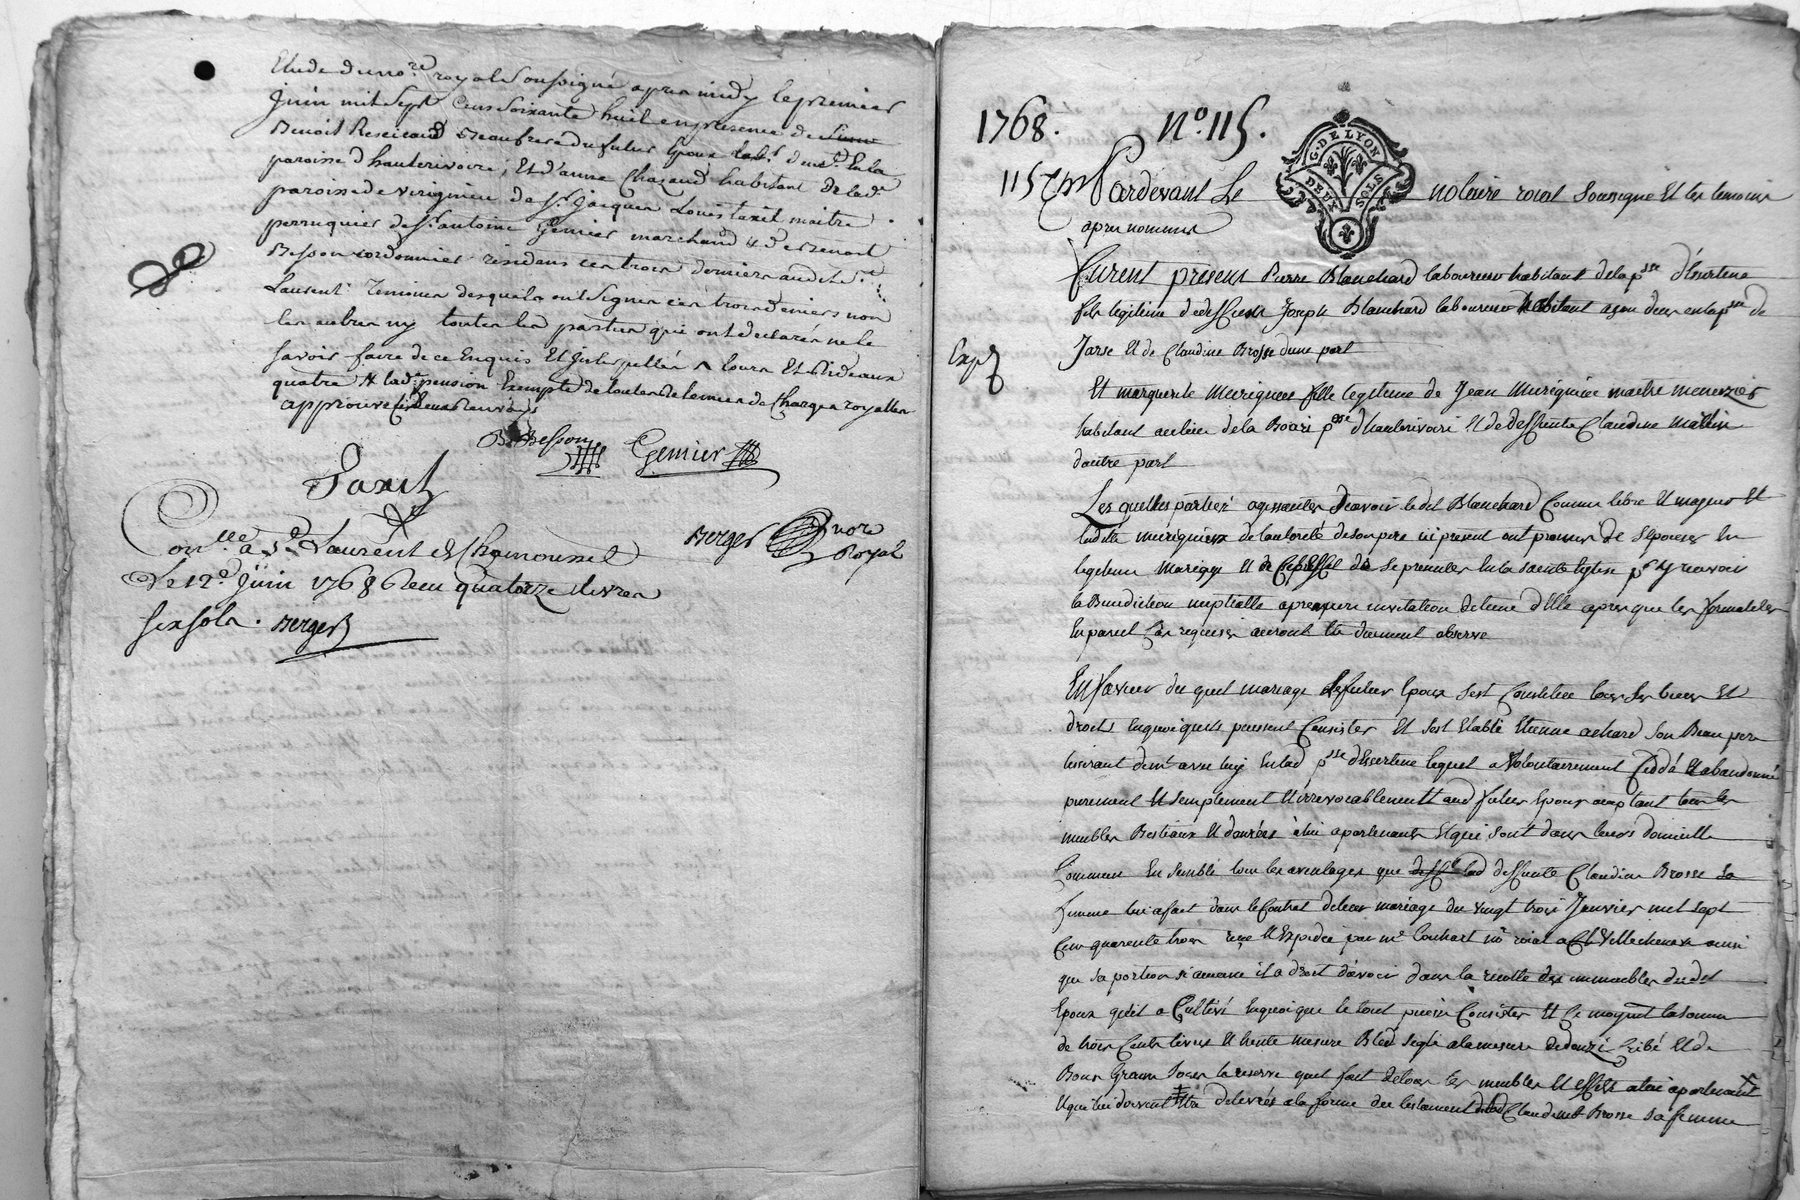 Etude du no.re royal soussigné apres midy le premier
juin mil sept cens soixante huit en presence de
Benoit Beaufrere du futur Epoux dem.t En la
paroisse d'hauterivoire, Et d'anne Chazaud habitant de lad.e
paroisse de virigneu de S.r jacques Louis taxil maitre
perruquier de S.r antoine Gemier marchand & de Benoit
Besson cordonnier residans ces trois derniers audit S.t
Laurent Temins desquels ont signés ces trois derniers non
les autres ny toutes les parties qui ont declarés ne le
savoir faire de ce Enquis Et interpellés
quatre & lad.e pension Exempte de toutes de charges royalles
approuve renvoys
B. Besson
Gemier
Taxil
Berger no.re Royal
Con.lle a S.t Laurent de Chamousset
Le 12.e juin 1768 Recu quatorze livres
six sols. Berger
1768. N.o 115.
G. DE LYON
DEUX SOLS
115 Pardevant Le notaire roial soussigné Et les temoins
apres nommes
Exp.
Furent presens Pierre Blanchard laboureur habitant de la p.sse d'Essertine
fils legitime de deffunt Joseph Blanchard laboureur habitant en la p.sse de
Jarse Et de Claudine Brosse d'une part
Et marguerite fille legitime de Jean maitre menuzier
habitant au lieu de la p.sse d'hauterivoire Et de deffunte Claudine
d'autre part
Les quelles parties agissantes scavoir le dit Blanchard comme libre Et majeur Et
ladite de l'autorité de son pere ici present ont promis de s'Epouser En
legitime mariage Et de se presenter En la sainte Eglise p.r y recevoir
la Benediction nuptialle a premiere invitation de l'une d'Elle apres que les formalités
En pareil cas requises auront Eté duement observé
En faveur du quel mariage le futur Epoux s'est Constitué tous ses biens Et
droits En quoi quils puissent Consister Et s'est Etablit Etienne achard son Beau pere
avec luy En lad p.sse d'Essertine lequel a volontairement Ceddé Et abandonné
purement Et simplement Et irrevocablement aud futur Epoux acceptant tous les
meubles Bestiaux Et danrées à lui apartenans Et qui sont dans leurs domicille
Commun En semble tous les aventages que lad deffunte Claudine Brosse sa
femme lui a fait dans le Contrat de leur mariage du vingt trois Janvier mil sept
Cens quarente trois reçu Et Expedié par m.e no.re roial a Villechenève ainsi
que sa portion si aucune il a droit d'avoir dans la recolte des immeubles dudit
Epoux qu'il a Cultivé En quoi que le tout puisse Consister Et Ce moyen.t la somme
de trois Cents livres Et trente mesure Bled segle a la mesure Cribé Et de
Bons Grains sous la reserve quil fait de tous les meubles Et Effets a lui apartenants
Et qui lui doivent Etre delivrés a la forme du testament de lad Claudine Brosse sa femme